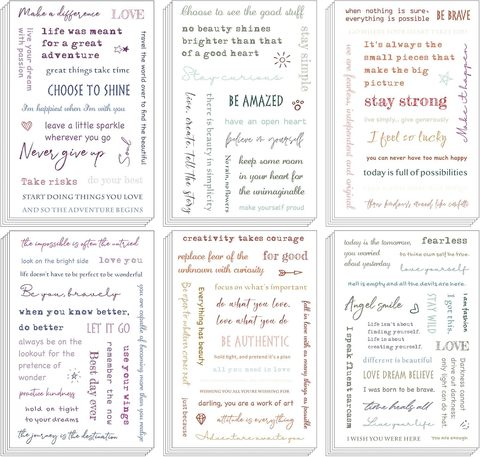 Make a difference
LOVE
life was meant
for a great
adventure
live your dream
with passion
travel the world over to find the beautiful
great things take time
CHOOSE TO SHINE
I'm happiest when I'm with you
leave a little sparkle
wherever you go
Never give up
Soul
Take risks
do your best
START DOING THINGS YOU LOVE
AND SO THE ADVENTURE BEGINS
Choose to see the good stuff
no beauty shines
brighter than that
of a good heart
stay simple
Stay curious
live, create, tell the story
there is beauty in simplicity
No rain, no flowers
BE AMAZED
have an open heart
believe in yourself
keep some room
in your heart for
the unimaginable
make yourself proud
when nothing is sure,
everything is possible
BE BRAVE
we are fearless, independent and original
It's always the
small pieces that
make the big
picture
stay strong
live simply, give generously
I feel so lucky
Make it happen
you can never have too much happy
today is full of possibilities
throw kindness around like confetti
the impossible is often the untried
look on the bright side
love you
life doesn't have to be perfect to be wonderful
Be you, bravely
when you know better,
do better
LET IT GO
always be on the
lookout for the
pretense of
wonder
practice kindness
hold on tight
to your dreams
Best day ever
remember the now
use your wings
you are capable of becoming more than you realize
the journey is the destination
creativity takes courage
replace fear of the
unknown with curiosity
for good
Everything has beauty
just because
focus on what's important
do what you love,
love what you do
BE AUTHENTIC
hold tight, and pretend it's a plan
all you need is love
fall in love with as many things as possible
WISHING YOU ALL YOU'RE WISHING FOR
darling, you are a work of art
attitude is everything
Adventure awaits you
today is the tomorrow,
you worried
about yesterday
fearless
love yourself
Hell is empty and all the devils are here
Angel smile
STAY WILD
I got this.
I am fashion
life isn't about
finding yourself.
life is about
creating yourself.
LOVE
I speak fluent sarcasm
different is beautiful
LOVE DREAM BELIEVE
I was born to be brave.
time heals all
Live your life
Darkness cannot
drive out darkness:
only light can do that
You are enough
I WISH YOU WERE HERE